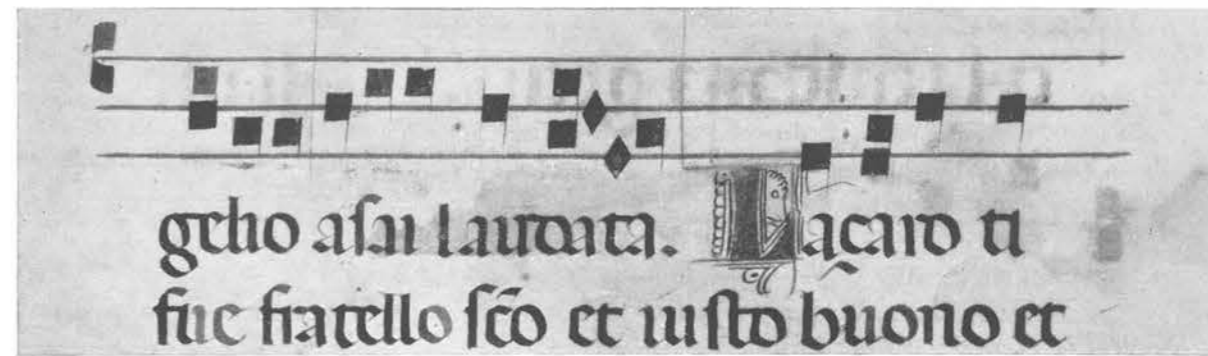 gelio asai laudata. Laçaro ti
fue fratello sc̄o et iusto buono et